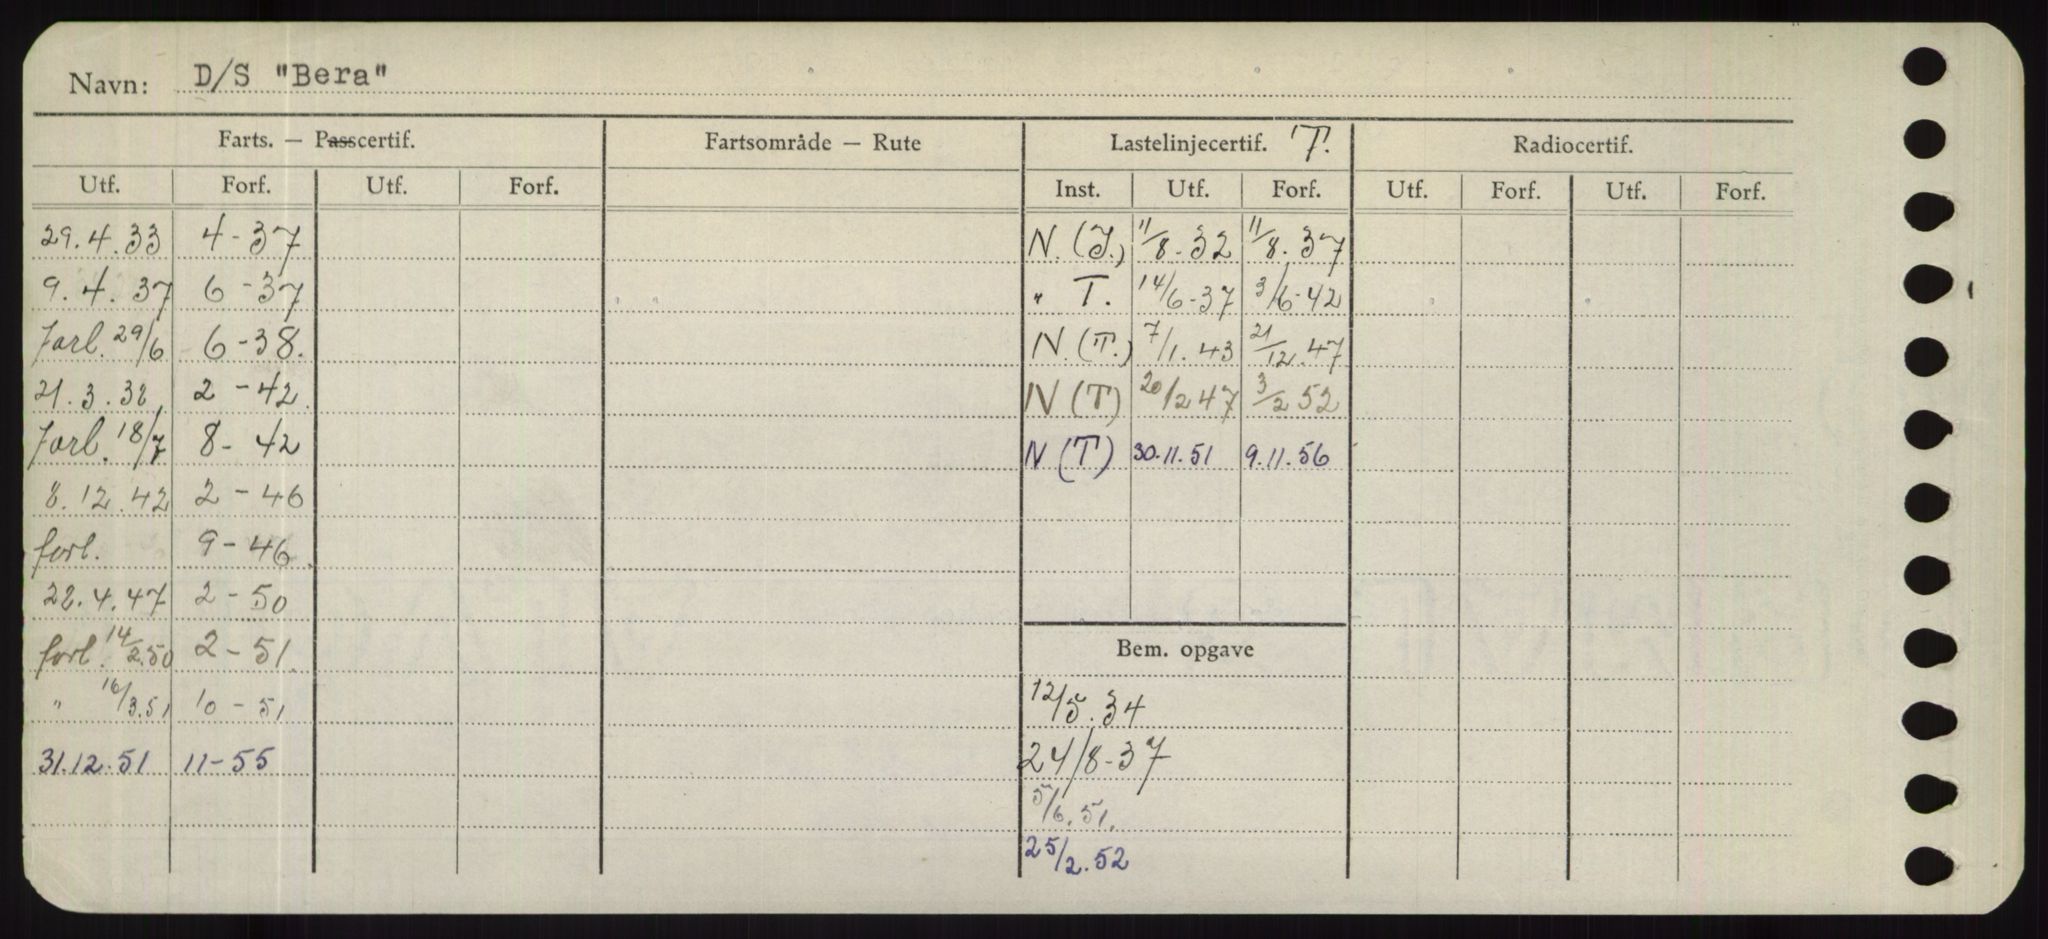 Navn: D/S "Bera"
Farts. — Passcertif. Fartsområde — Rute Lastelinjecertif. T. Radiocertif.
Utf. Forf. Utf. Forf. Inst. Utf. Forf. Utf. Forf. Utf. Forf.
29.4.33 4-37 N. (I.) 11/8-32 11/8.37
9.4.37 6-37 " T. 14/6-37 3/6-42
Forl. 29/6 6-38. N. (T.) 7/1.43 21/12.47
21.3.38, 2-42 N (T) 20/2 47 3/2 52
Forl. 18/7 8-42 N (T) 30.11.51 9.11.56
8.12.42 2-46
forl. 9-46
22.4.47 2-50
forl. 14/2.50 2-51. Bem. opgave
" 16/3.51 10-51 12/5.34
31.12.51 11-55 24/8-37
5/6.51.
25/2.52